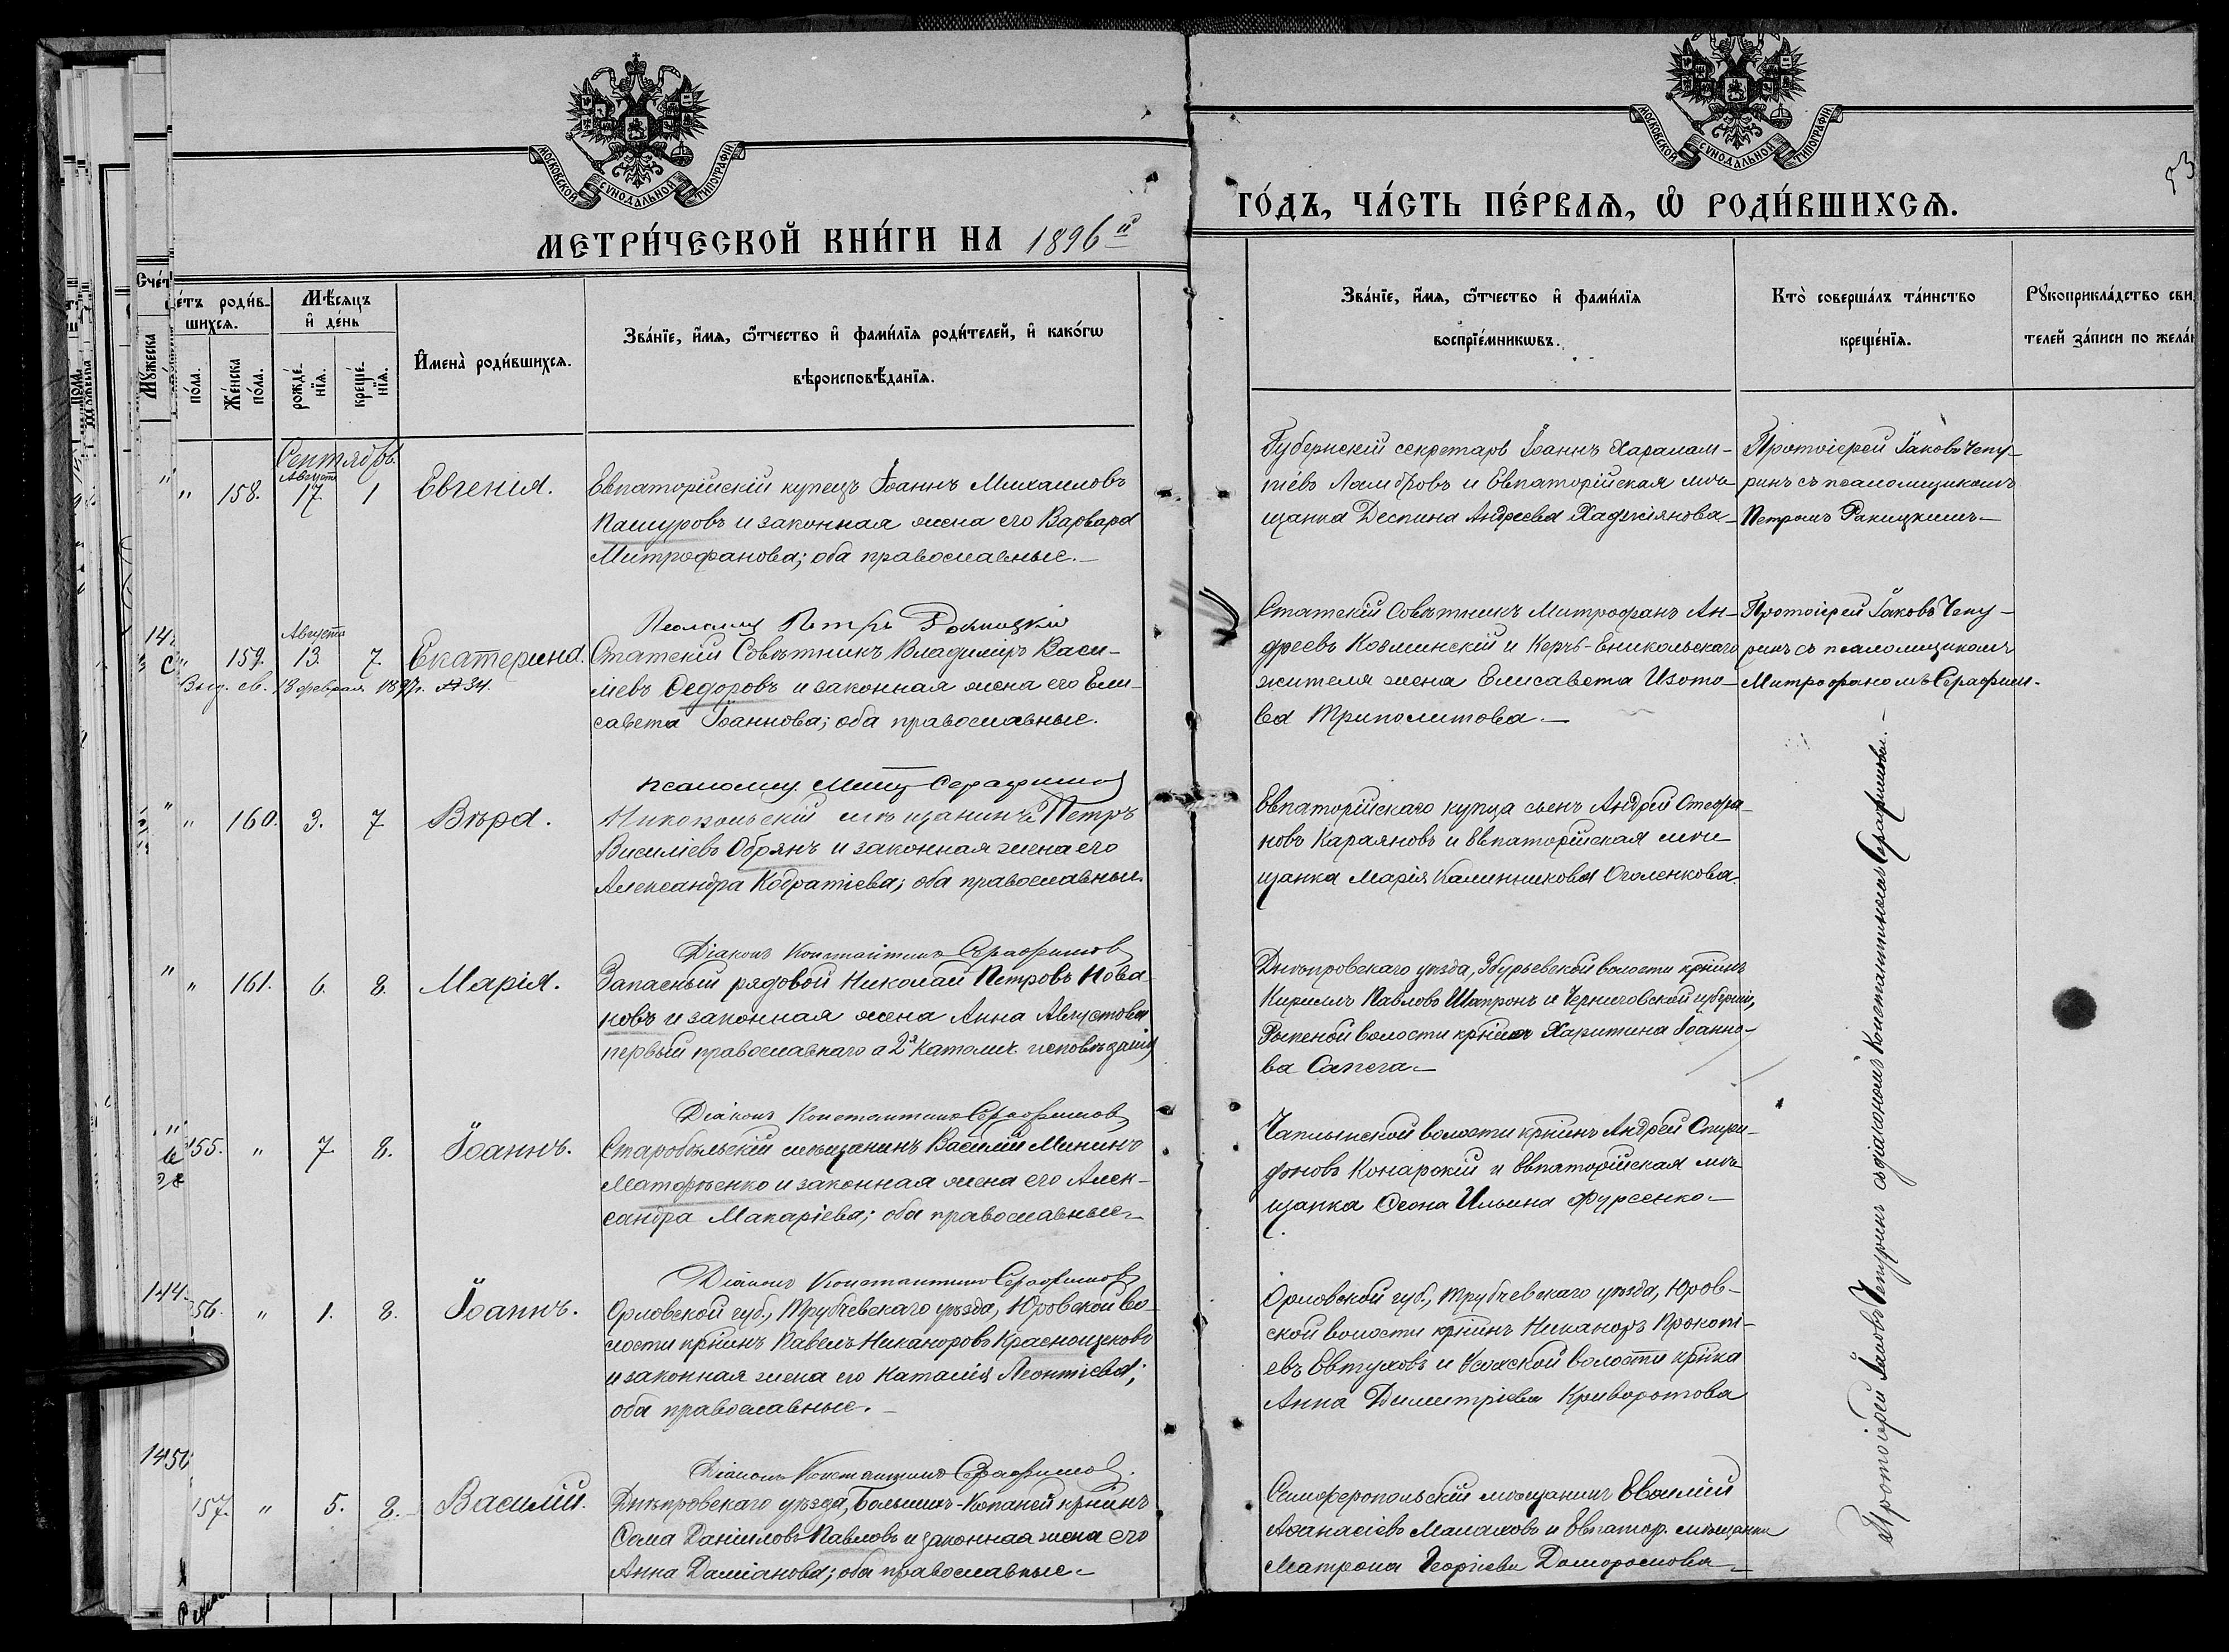 МОСКОВСКОЙ СѴНОДАЛЬНОЙ ТИПОГРАФІИ
МЕТРИ́ЧЕСКОЙ КНИ́ГИ НА 1896й
МОСКОВСКОЙ СѴНОДАЛЬНОЙ ТИПОГРАФІИ
ГО́ДЪ, ЧА́СТЬ ПЕ́РВАѦ, Ѡ҆ РОДИ́ВШИХСѦ.
53
Счет
етъ роди́в-
шихсѧ.
по́ла.
Же́нска по́ла.
Мѣ́сѧцъ
и҆ де́нь
рожде́нїѧ.
креще́нїѧ.
И҆мена̀ роди́вшихсѧ.
Зва́нїе, и҆́мѧ, ѻ҆́тчество и҆ фами́лїѧ роди́телей, и҆ како́гѡ
вѣроисповѣ́данїѧ.
Зва́нїе, и҆́мѧ, ѻ҆́тчество и҆ фами́лїѧ
воспрїе́мникѡвъ.
Кто̀ соверша́лъ та́инство
креще́нїѧ.
Рꙋкоприкла́дство сви
телей за́писи по жела
Сентябрь
Августа
" 158. 17. 1 Евгенія.
Евпаторійскій купецъ Іоаннъ Михаиловъ
Пашуровъ и законная жена его Варвара
Митрофанова; оба православные.—
Губернскій секретарь Іоаннъ Харалам-
піевъ Ламбровъ и Евпаторійская мѣ-
щанка Деспина Андреева Хаджіянова—
Протоіерей Іаковъ Чепу-
ринъ съ псаломщикомъ
Петромъ Ракицкимъ—
Псаломщ Петръ Ракицкій
Августа
" 159. 13. 7 Екатерина.
Выд. св. 18 февраля 1897г. № 34.
Статскій Совѣтникъ Владиміръ Васи-
льевъ Ѳедоровъ и законная жена его Ели-
савета Іоаннова; оба православные.
Статскій Совѣтникъ Митрофанъ Ан-
дреевъ Козминскій и Керчь-Еникольскаго
жителя жена Елисавета Изото-
ва Триполитова.—
Протоіерей Іаковъ Чепу-
ринъ съ псаломщикомъ
Митрофаномъ Серафим-
Псаломщ. Митр Серафимов
" 160. 3. 7 Вѣра.
Никопольскій мѣщанинъ Петръ
Василіевъ Обрянъ и законная жена его
Александра Кодратіева; оба православные.
Евпаторійскаго купца сынъ Андрей Стефа-
новъ Караяновъ и Евпаторійская мѣ-
щанка Марія Калинникова Оголенкова.
Діаконъ Константинъ Серафимов
" 161. 6. 8. Марія.
Запасный рядовой Николай Петровъ Нова-
новъ и законная жена Анна Августова
первый православнаго а 2я католич. исповѣданія
Днѣпровскаго уѣзда, Збурьевской волости кр҃нинъ
Кириллъ Павловъ Шапронъ и Черниговской губерніи,
волости Харитина Іоанно-
ва Сапега—
Діаконъ Константинъ Серафимов
155. " 7. 8. Іоаннъ.
Старобѣльскій мѣщанинъ Василій Мининъ
Матфѣенко и законная жена его Алек-
сандра Макаріева; оба православные—
Чаплынской волости кр҃нинъ Андрей Спири-
доновъ Конарскій и Евпаторійская мѣ-
щанка Ѳеона Ильина Фурсенко—
Діаконъ Константинъ Серафимов
144.
56. " 1. 8. Іоаннъ.
Орловской губ., Трубчевскаго уѣзда, Юровской во-
лости кр҃нинъ Павелъ Никаноровъ Краснощековъ
и законная жена его Наталія Леонтіева;
оба православные.—
Орловской губ., Трубчевскаго уѣзда, Юров-
ской волости кр҃нинъ Никаноръ Прокопі-
евъ Евтуховъ и волости кр҃нка
Анна Димитріева Криворотова
Діаконъ Константинъ Серафимов.
145
157. " 5. 8. Василій.
Днѣпровскаго уѣзда, Большихъ-Копаней кр҃нинъ
Ѳома Даніиловъ Павловъ и законная жена его
Анна Даміанова; оба православные—
Симферопольскій мѣщанинъ Евѳимій
Аѳанасіевъ Малаховъ и Евпатор. мѣщанка
Матрона Георгіева Доморослова—
Протоіерей Іаковъ Чепуринъ съ діакономъ Константиномъ Серафимовы.—